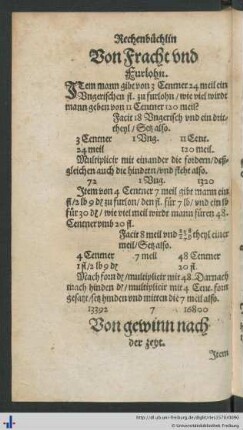 Rechenbüchlin
Von Fracht vnd
Furlohn.
ITem mann gibt von 3 Centner 24 meil ein
Vngerischen fl. zu furlohn / wie viel würdt
mann geben von 11 Centner 120 meil?
Facit 18 Vngerisch vnd ein drit-
theyl / Setz also.
3 Centner 1 Vng. 11 Cent.
24 meil 120 meil.
Multiplicir mit einander die fordern / deß-
gleichen auch die hindern / vnd steht also.
72 1 Vng. 1320
Item von 4 Centner 7 meil gibt mann ein
fl / 2 lb 9 dz zu furlon / den fl. für 7 lb / vnd ein lb
für 30 dz / wie viel meil würdt mann füren 48
Centner vmb 20 fl.
Facit 8 meil vnd theyl einer
meil / Setz also.
4 Centner 7 meil 48 Centner
1 fl / 2 lb 9 dz 20 fl.
Mach forn dz / multiplicir mit 48. Darnach
mach hinden dz / multiplicir mit 4 Cent. forn
gesatzt / setz hinden vnd mitten die 7 meil also.
13392 7 16800
Von gewinn nach
der zeyt.
Item
© Universitätsbibliothek Freiburg